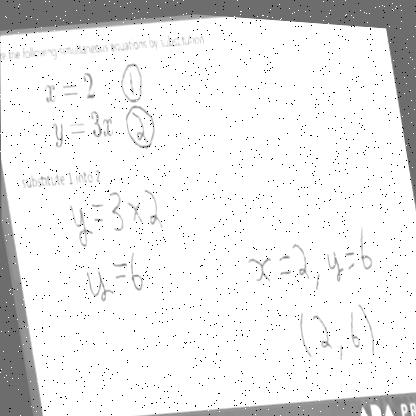 the following simultaneous equations by substitution
x = 2 ①
y = 3x ②
substitute 1 into 2
y = 3 × 2
y = 6
x = 2, y = 6
(2, 6)